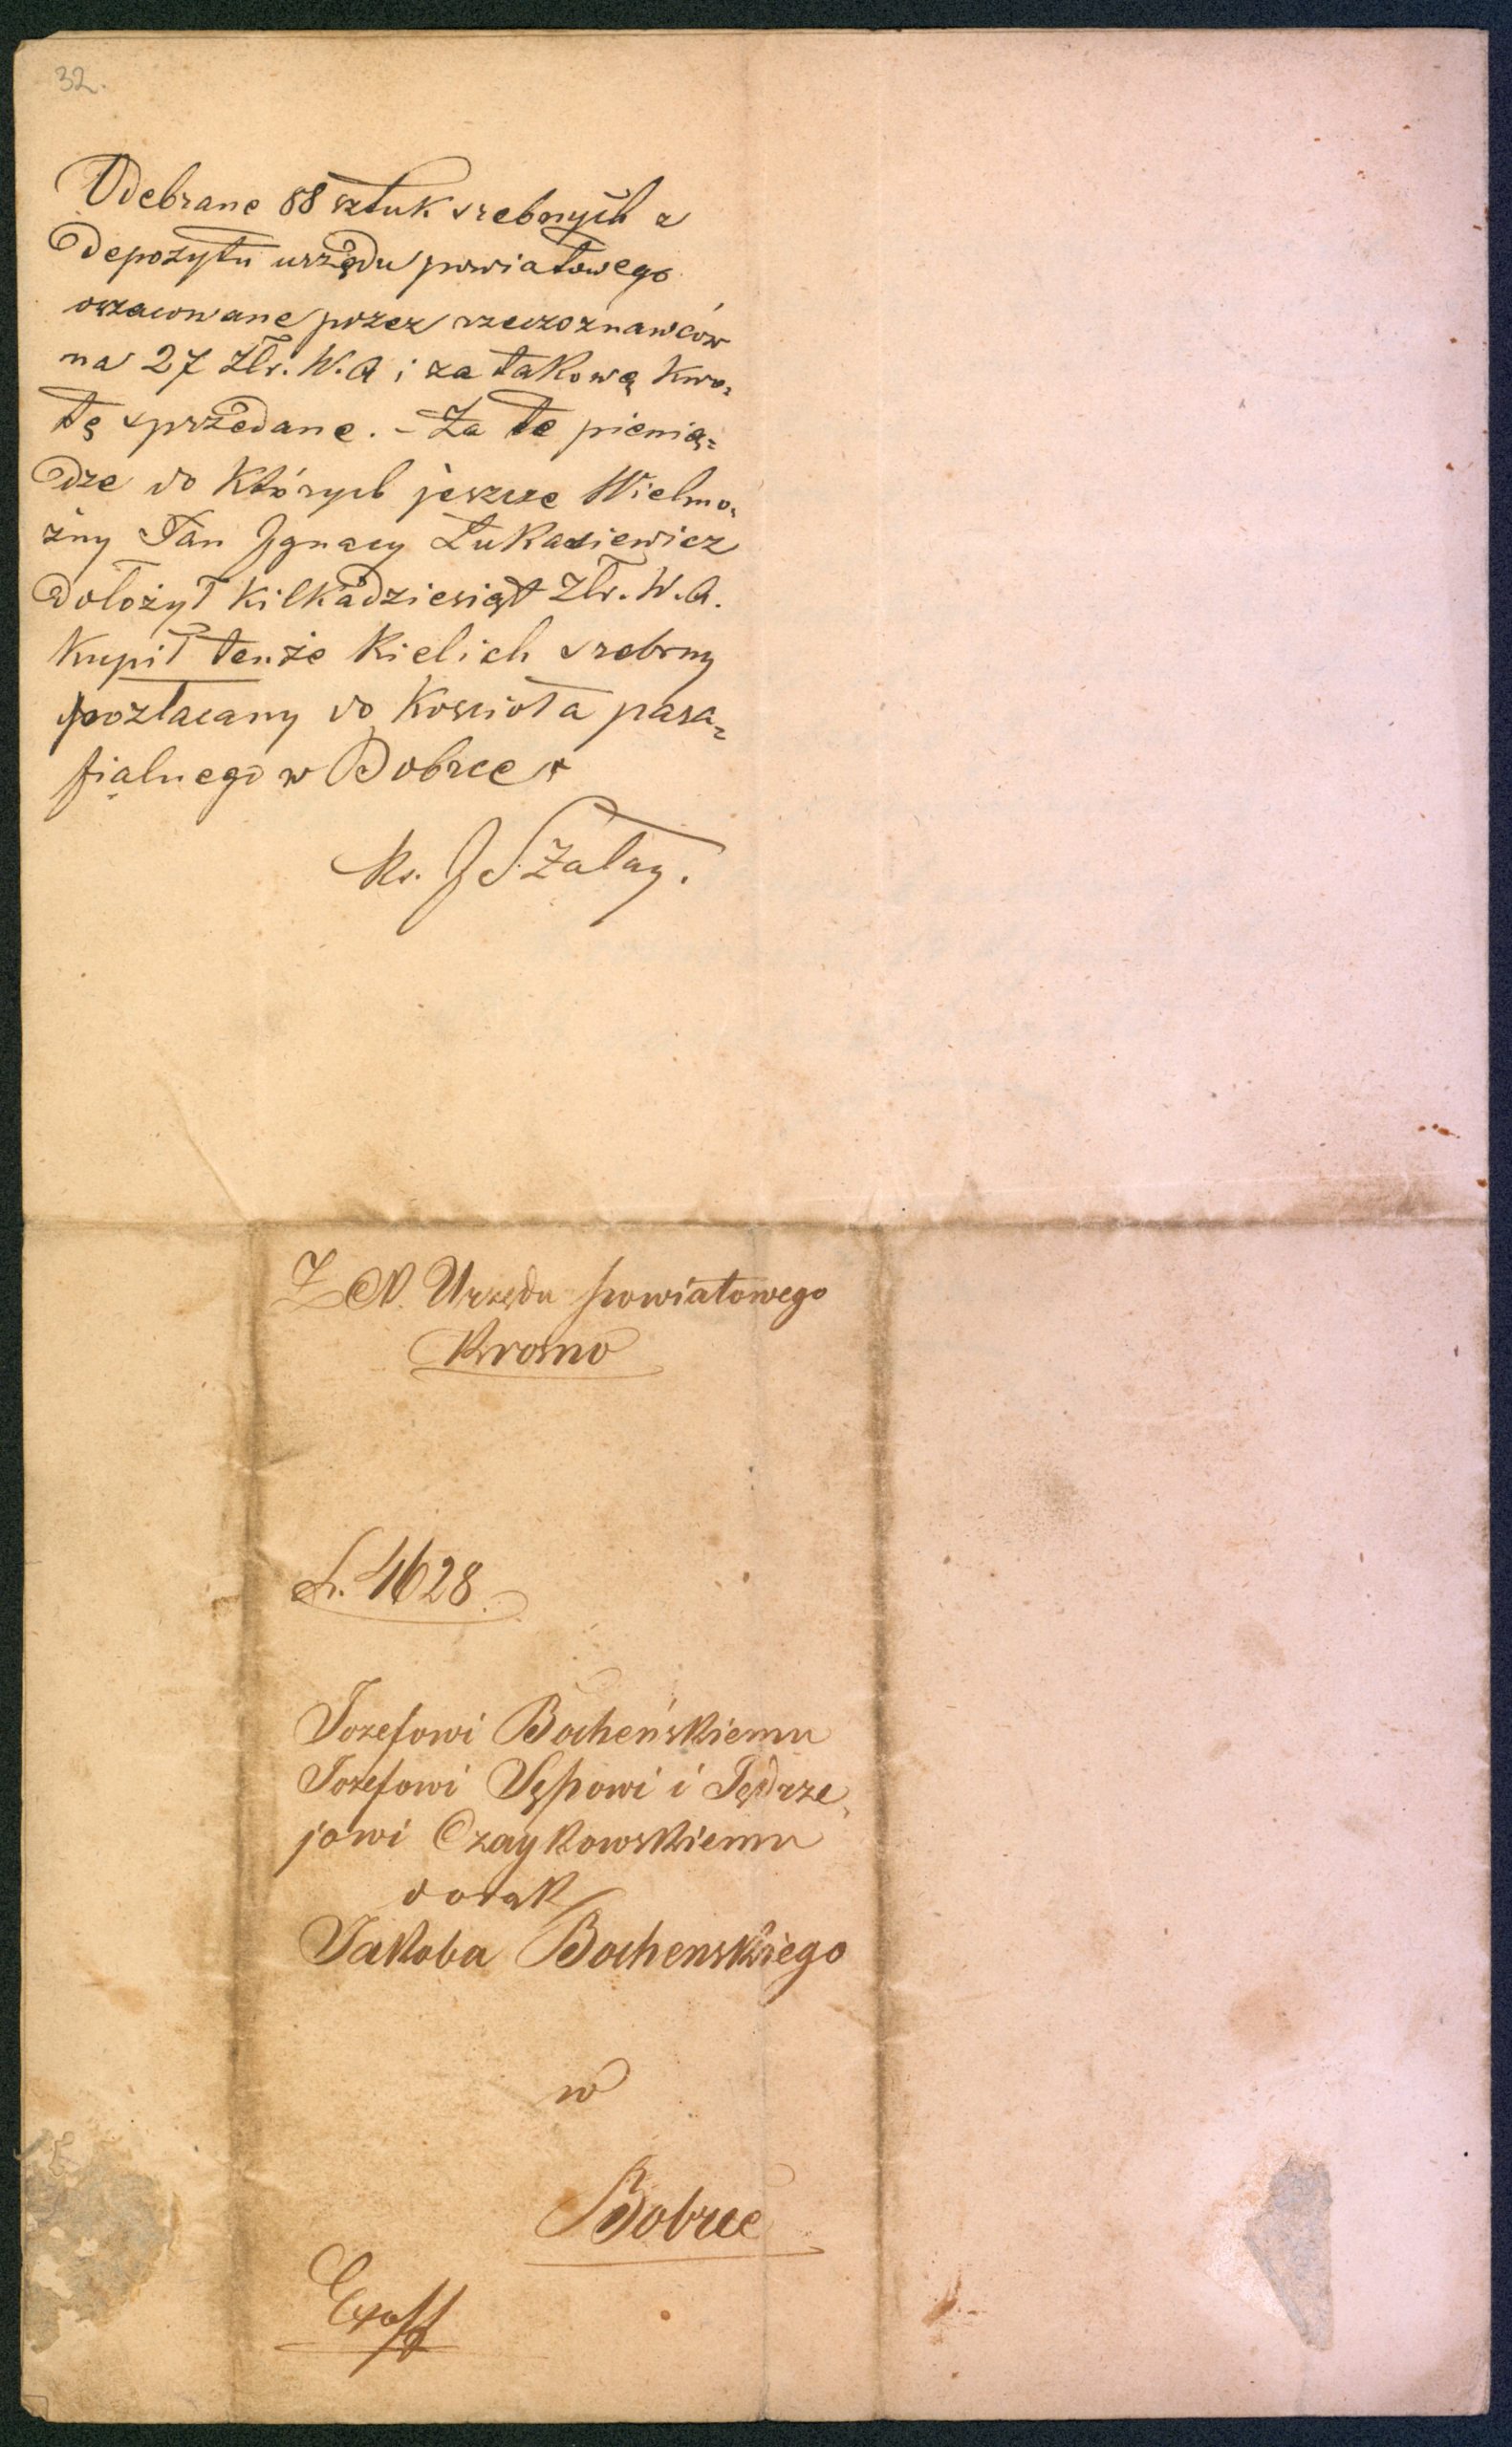 32.
Odebrane 88 sztuk srebnych z
Depozytu urzędu powiatowego
oszacowane przez rzeczoznawców
na 27 Złr. W.A i za takową kwo=
tę sprzedane. – Za te pienią=
dze do których jeszcze Wielmo=
żny Pan Ignacy Łukasiewicz
dołożył kilkadziesiąt Złr. W.A.
Kupił tenże Kielich srebrny
pozłacany do Kościoła para=
fialnego w Bobrce
Ks. J Szałay.
Z Urzędu powiatowego
Krosno
L. 4628.
Jozefowi Bocheńskiemu
Jozefowi Sępowi i Jędrze=
jowi Czaykowskiemu
do rąk
Jakoba Bochenskiego
w
Bobrce
Exoff